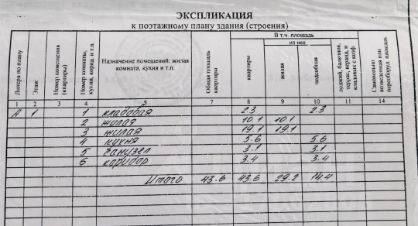 ЭКСПЛИКАЦИЯ
к поэтажному плану здания (строения)
Литера по плану | Этаж | Номер помещения (квартиры) | Номер комнаты, кухни, корид. и т.п. | Назначение помещений: жилая комната, кухня и т.п. | Общая площадь квартиры | В т.ч. площадь | из нее | квартиры | жилая | подсобная | лоджий, балконов, террас, веранд и кладовых | Самовольно
1 2 3 4 5 7 8 9 10 11 14
А 1 1 кладовая 2.3 2.3
2 жилая 10.1 10.1
3 жилая 19.1 19.1
4 кухня 5.6 5.6
5 санузел 3.1 3.1
6 коридор 3.4 3.4
Итого 43.6 43.6 29.2 14.4